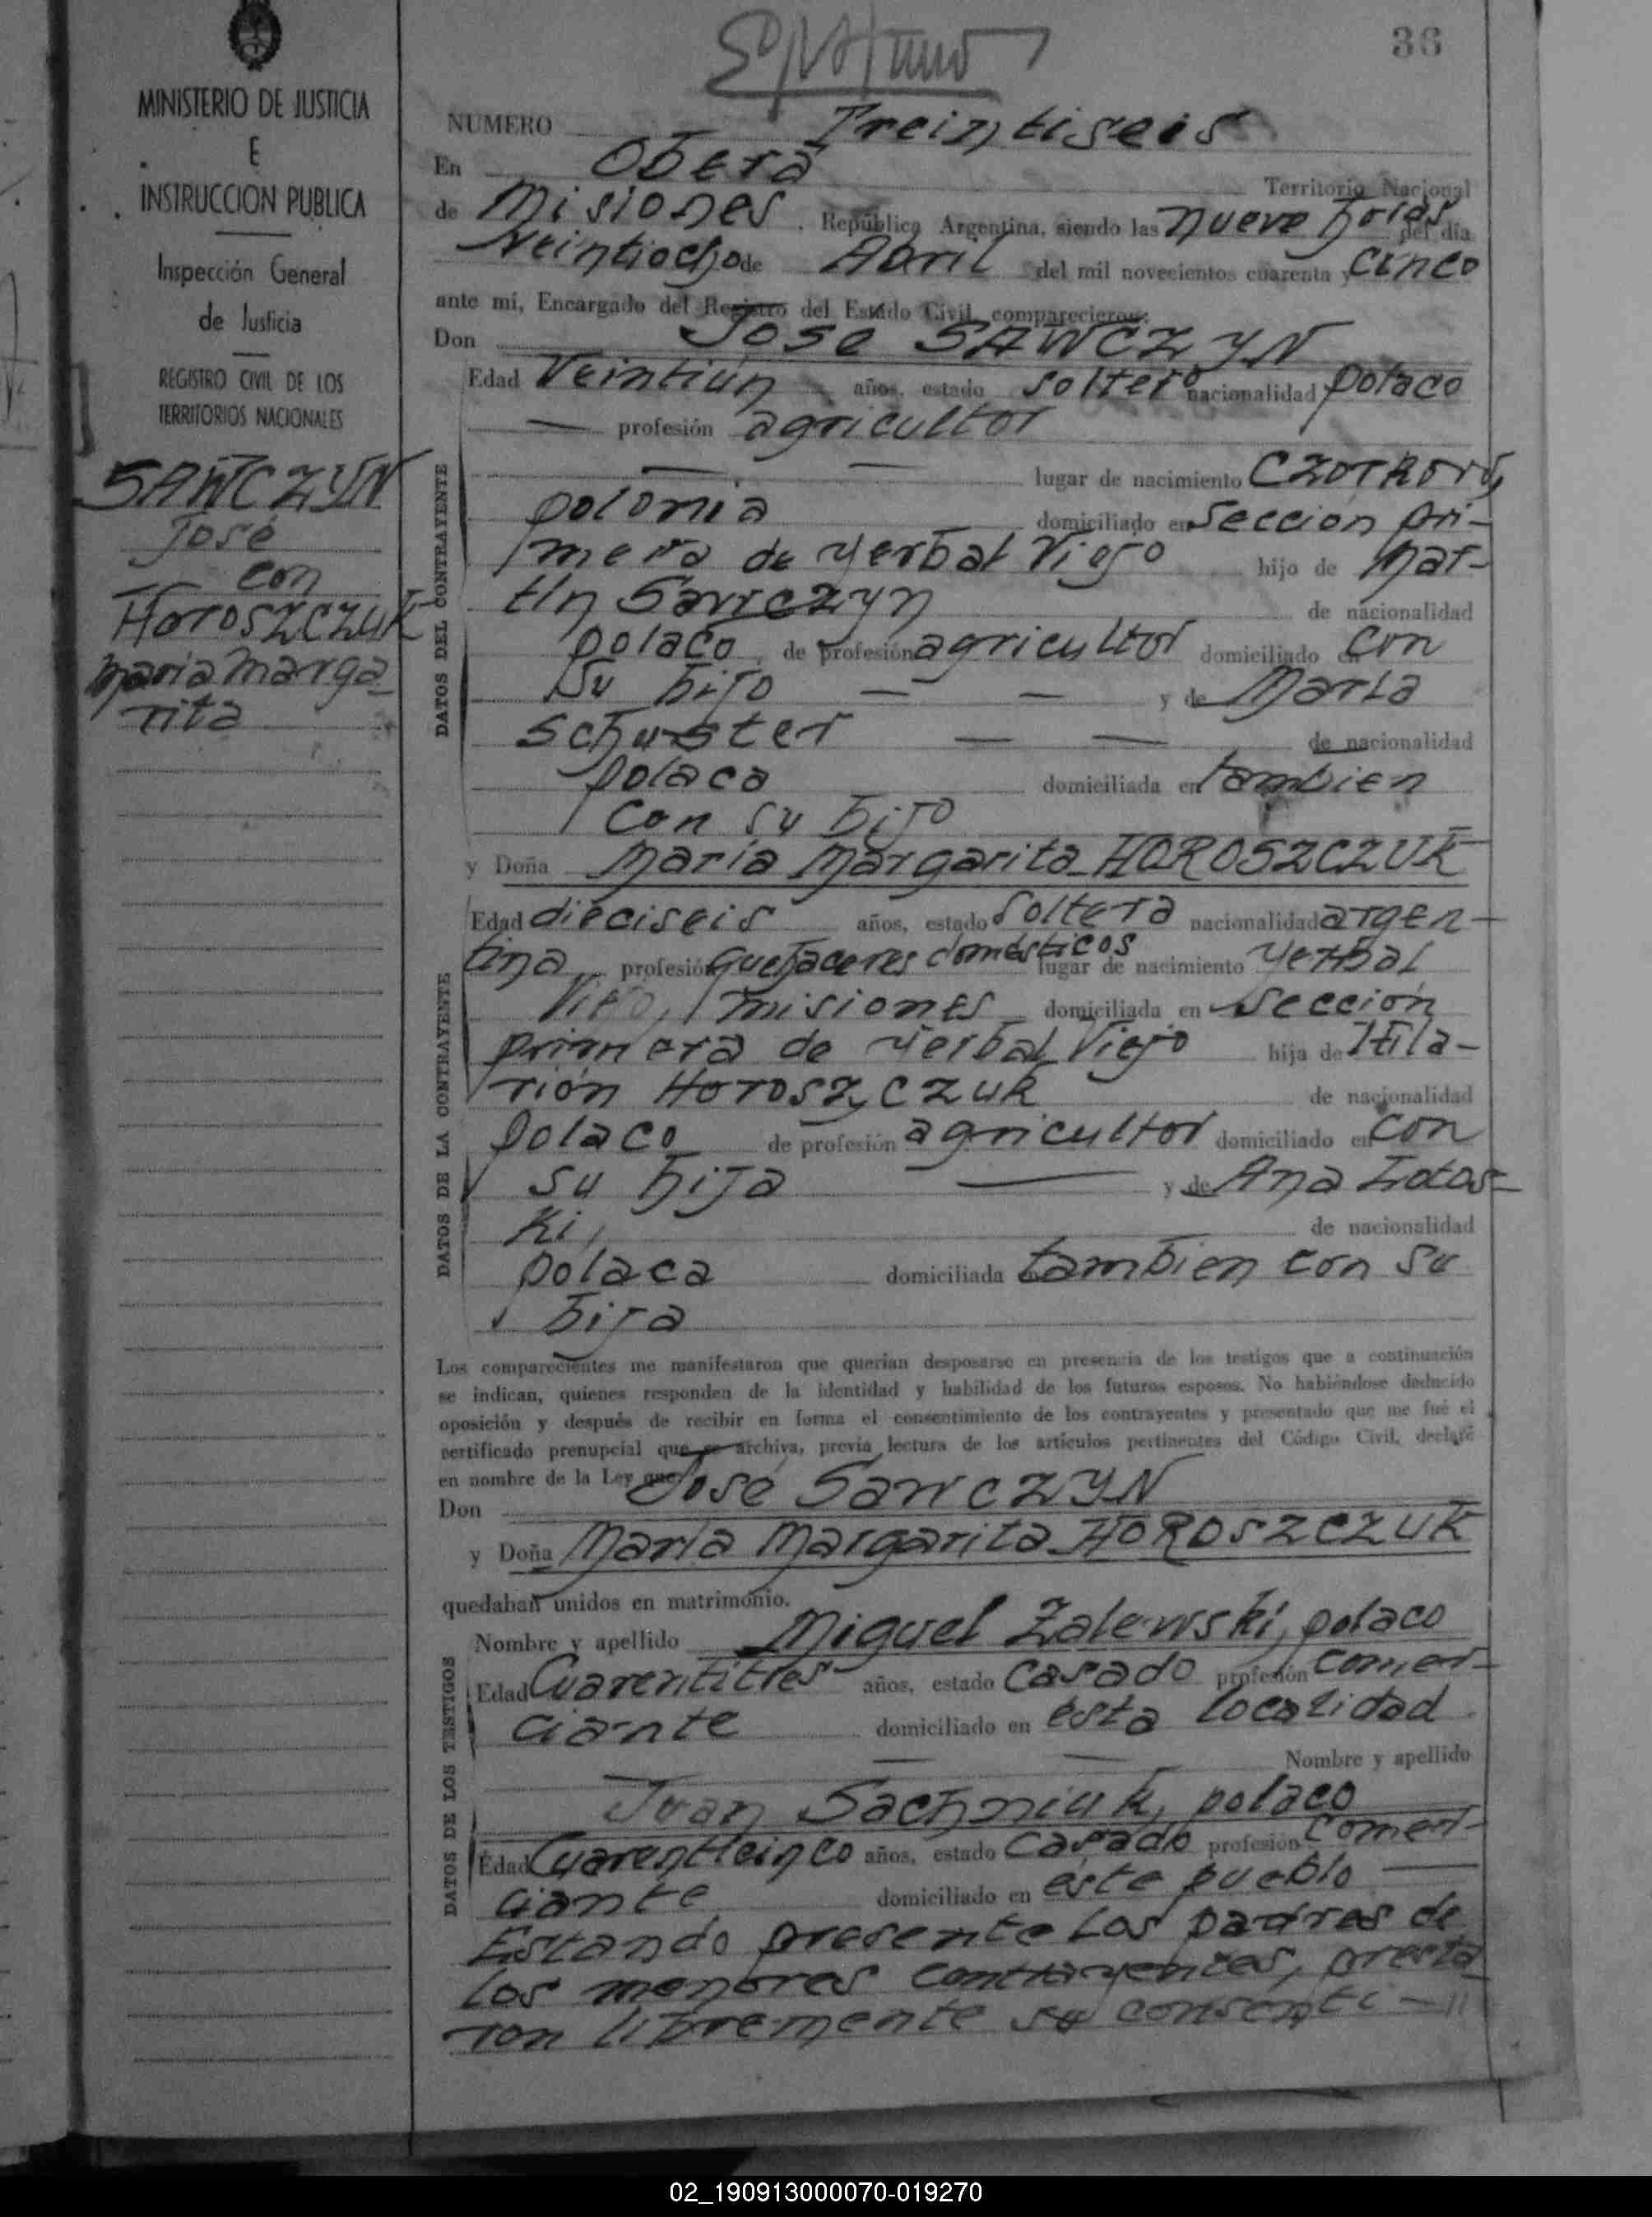 36
MINISTERIO DE JUSTICIA
E
INSTRUCCION PUBLICA
Inspección General
de Justicia
REGISTRO CIVIL DE LOS
TERRITORIOS NACIONALES
SAWCZYN
José
con
HOROSZCZUK
María Marga
rita
NUMERO Treintiseis
En Oberá Territorio Nacional
de Misiones, República Argentina, siendo las nueve horas del día
veintiocho de Abril del mil novecientos cuarenta y cinco
ante mí, Encargado del Registro del Estado Civil, comparecieron:
Don José SAWCZYN
DATOS DEL CONTRAYENTE
Edad Veintiún años, estado soltero nacionalidad polaco
— profesión agricultor
— — lugar de nacimiento
polonia domiciliado en Sección pri-
mera de Yerbal Viejo hijo de Mar-
tín Sawczyn de nacionalidad
polaco, de profesión agricultor domiciliado en con
su hijo — — y de María
Schuster — — de nacionalidad
polaca domiciliada en tambien
con su hijo
y Doña María Margarita HOROSZCZUK
DATOS DE LA CONTRAYENTE
Edad dieciseis años, estado soltera nacionalidad argen-
tina profesión quehaceres domésticos lugar de nacimiento Yerbal
Viejo, misiones domiciliada en sección
primera de Yerbal Viejo hija de Hila-
rión HOROSZCZUK de nacionalidad
polaco de profesión agricultor domiciliado en con
su hija — y de Ana
ki, de nacionalidad
polaca domiciliada tambien con su
hija
Los comparecientes me manifestaron que querían desposarse en presencia de los testigos que a continuación
se indican, quienes responden de la identidad y habilidad de los futuros esposos. No habiéndose deducido
oposición y después de recibir en forma el consentimiento de los contrayentes y presentado que me fué el
certificado prenupcial que se archiva, previa lectura de los artículos pertinentes del Código Civil, declaré
en nombre de la Ley que
Don José SAWCZYN
y Doña María Margarita HOROSZCZUK
quedaban unidos en matrimonio.
DATOS DE LOS TESTIGOS
Nombre y apellido Miguel Zalewski, polaco
Edad Cuarentitres años, estado casado profesión comer-
ciante domiciliado en esta localidad
— — Nombre y apellido
Juan Sachniuk, polaco
Edad Cuarenticinco años, estado casado profesión comer-
ciante domiciliado en este pueblo —
Estando presente los padres de
los menores contrayentes, presta
ron libremente su consenti-//
02_190913000070-019270